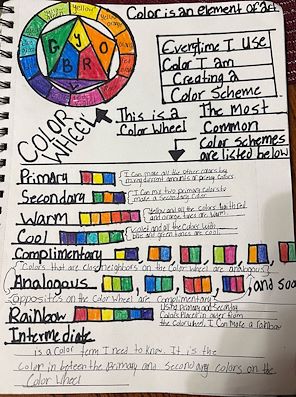 Color is an element of art
Yellow
orange
G Y O
B R
V
Everytime I use
Color I am
Creating a
Color Scheme
This is a
Color Wheel
COLOR
WHEEL
The most
Common
Color schemes
are listed below
Primary
I can make all the other colors by
mixing different amounts of primary colors
Secondary
I can mix two primary colors to
make a Secondary Color
Warm
Yellow and all the colors with red
and orange tones are warm.
Cool
violet and all the colors with
blue and green tones are cool
Complimentary
Colors that are close neighbors on the Color wheel are analogous
Analogous
, and so
opposites on the Color wheel are Complimentary
Rainbow
Using primary and Secondary
Colors placed in order from
the Color wheel, I Can make a rainbow
Intermediate
is a Color term I need to know. It is the
Color in beteen the primary and secondary colors on the
Color wheel